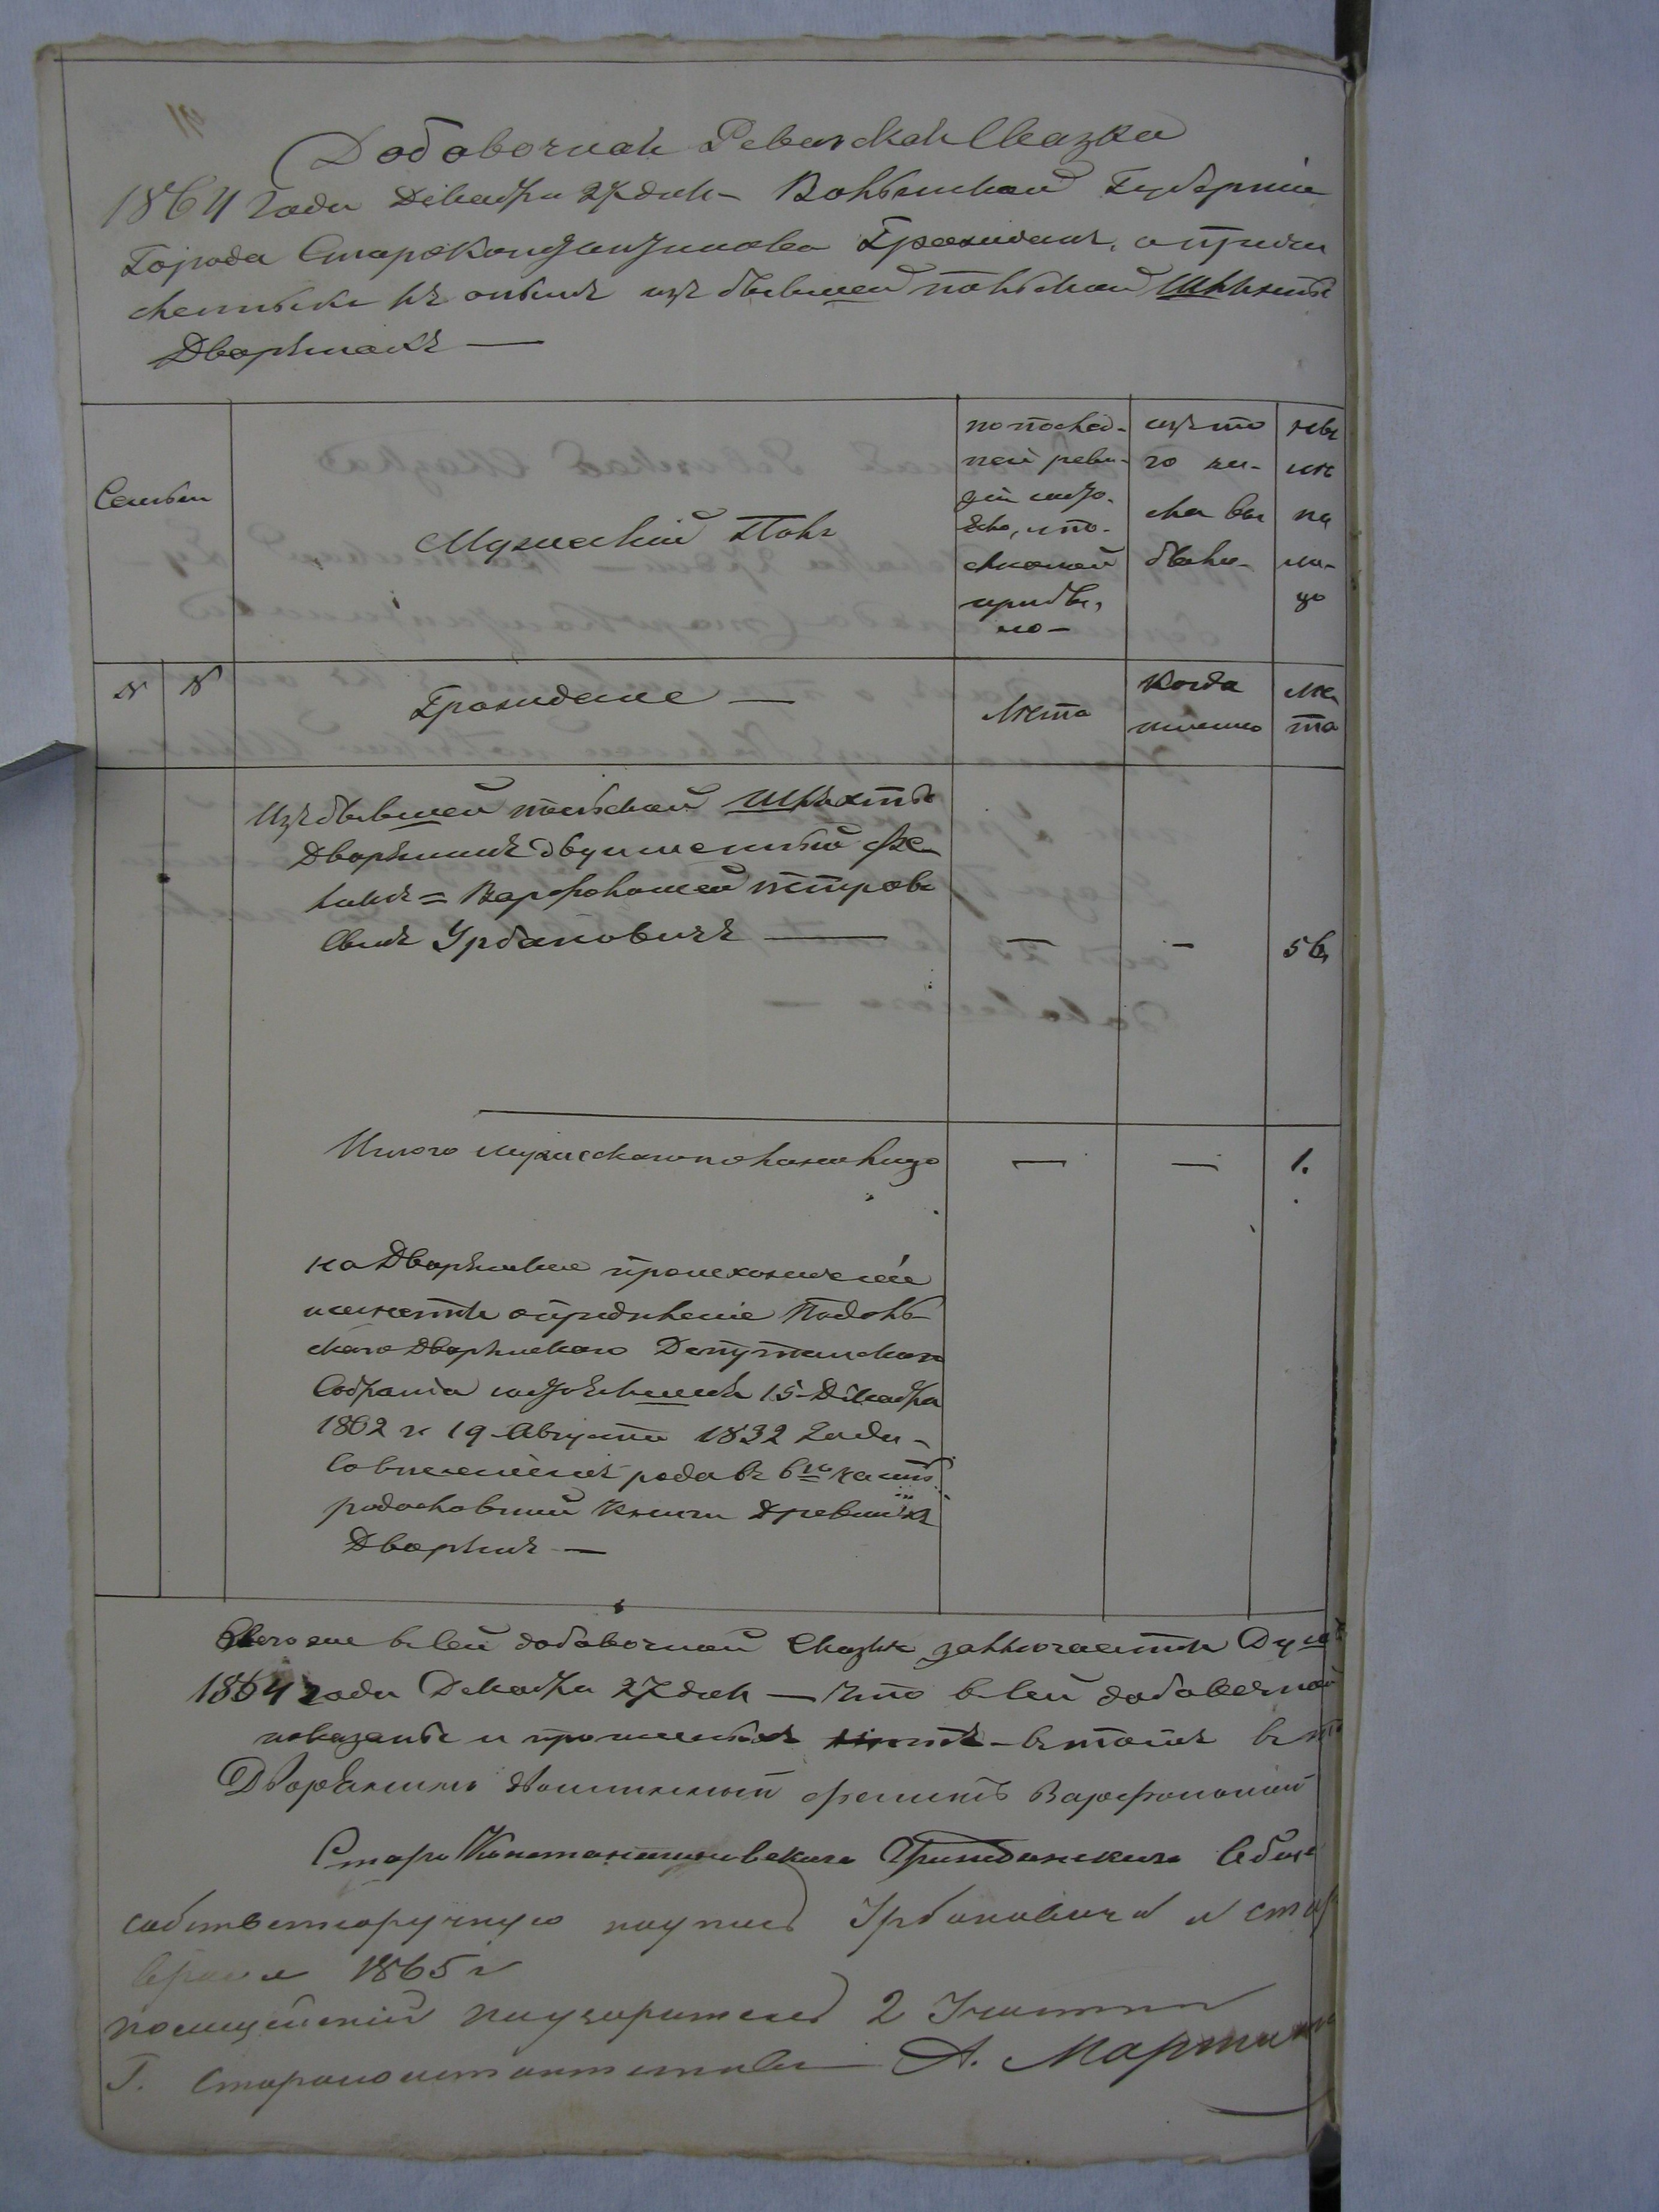 Добавочная Ревизская Сказка
1864 года Декабря 27 дня – Волынской Губерніи
Города Староконстантинова Гражданъ, о причи
сленныхъ къ онымъ изъ бывшей польской Шляхты
Дворянахъ —
Семьи
Мужескій Полъ
по послѣд-
ней реви-
зіи состо-
яло, и по-
слѣ оной
прибы-
ло –
изъ то
го чи-
сла вы
было –
ны
нѣ
на
ли-
цо
№ №
Гражданѣ —
Лѣта
когда
именно
Лѣ
та
Изъ бывшей польской Шляхты
Дворянинъ двуименный Фе-
ликсъ = Варфоломей Петровъ
Сынъ Урбановичъ —
—
—
56,
Итого мужескаго пола на лицо
—
—
1.
на Дворянское происхожденіе
имѣетъ опредѣленіе Подоль-
скаго Дворянскаго Депутатскаго
Собранія состоявшіяся 15 Декабря
1802 и 19 Августа 1832 года –
Со внесеніемъ рода въ 6ю часть
родословной книги древнихъ
Дворянъ —
Всего же въ сей добавочной Сказкѣ заключается Душъ
1864 года Декабря 27 дня — Что въ сей добавочной
показаны и прописныхъ нѣтъ – въ томъ
Дворянинъ двоименный Феликсъ Варфоломей
СтароКонстантиновскаго Гражданскаго
собственноручную подпись Урбановича и
1865 г
полицейскій надзиратель 2 Участка
Г. Староконстантинова А. Мартин